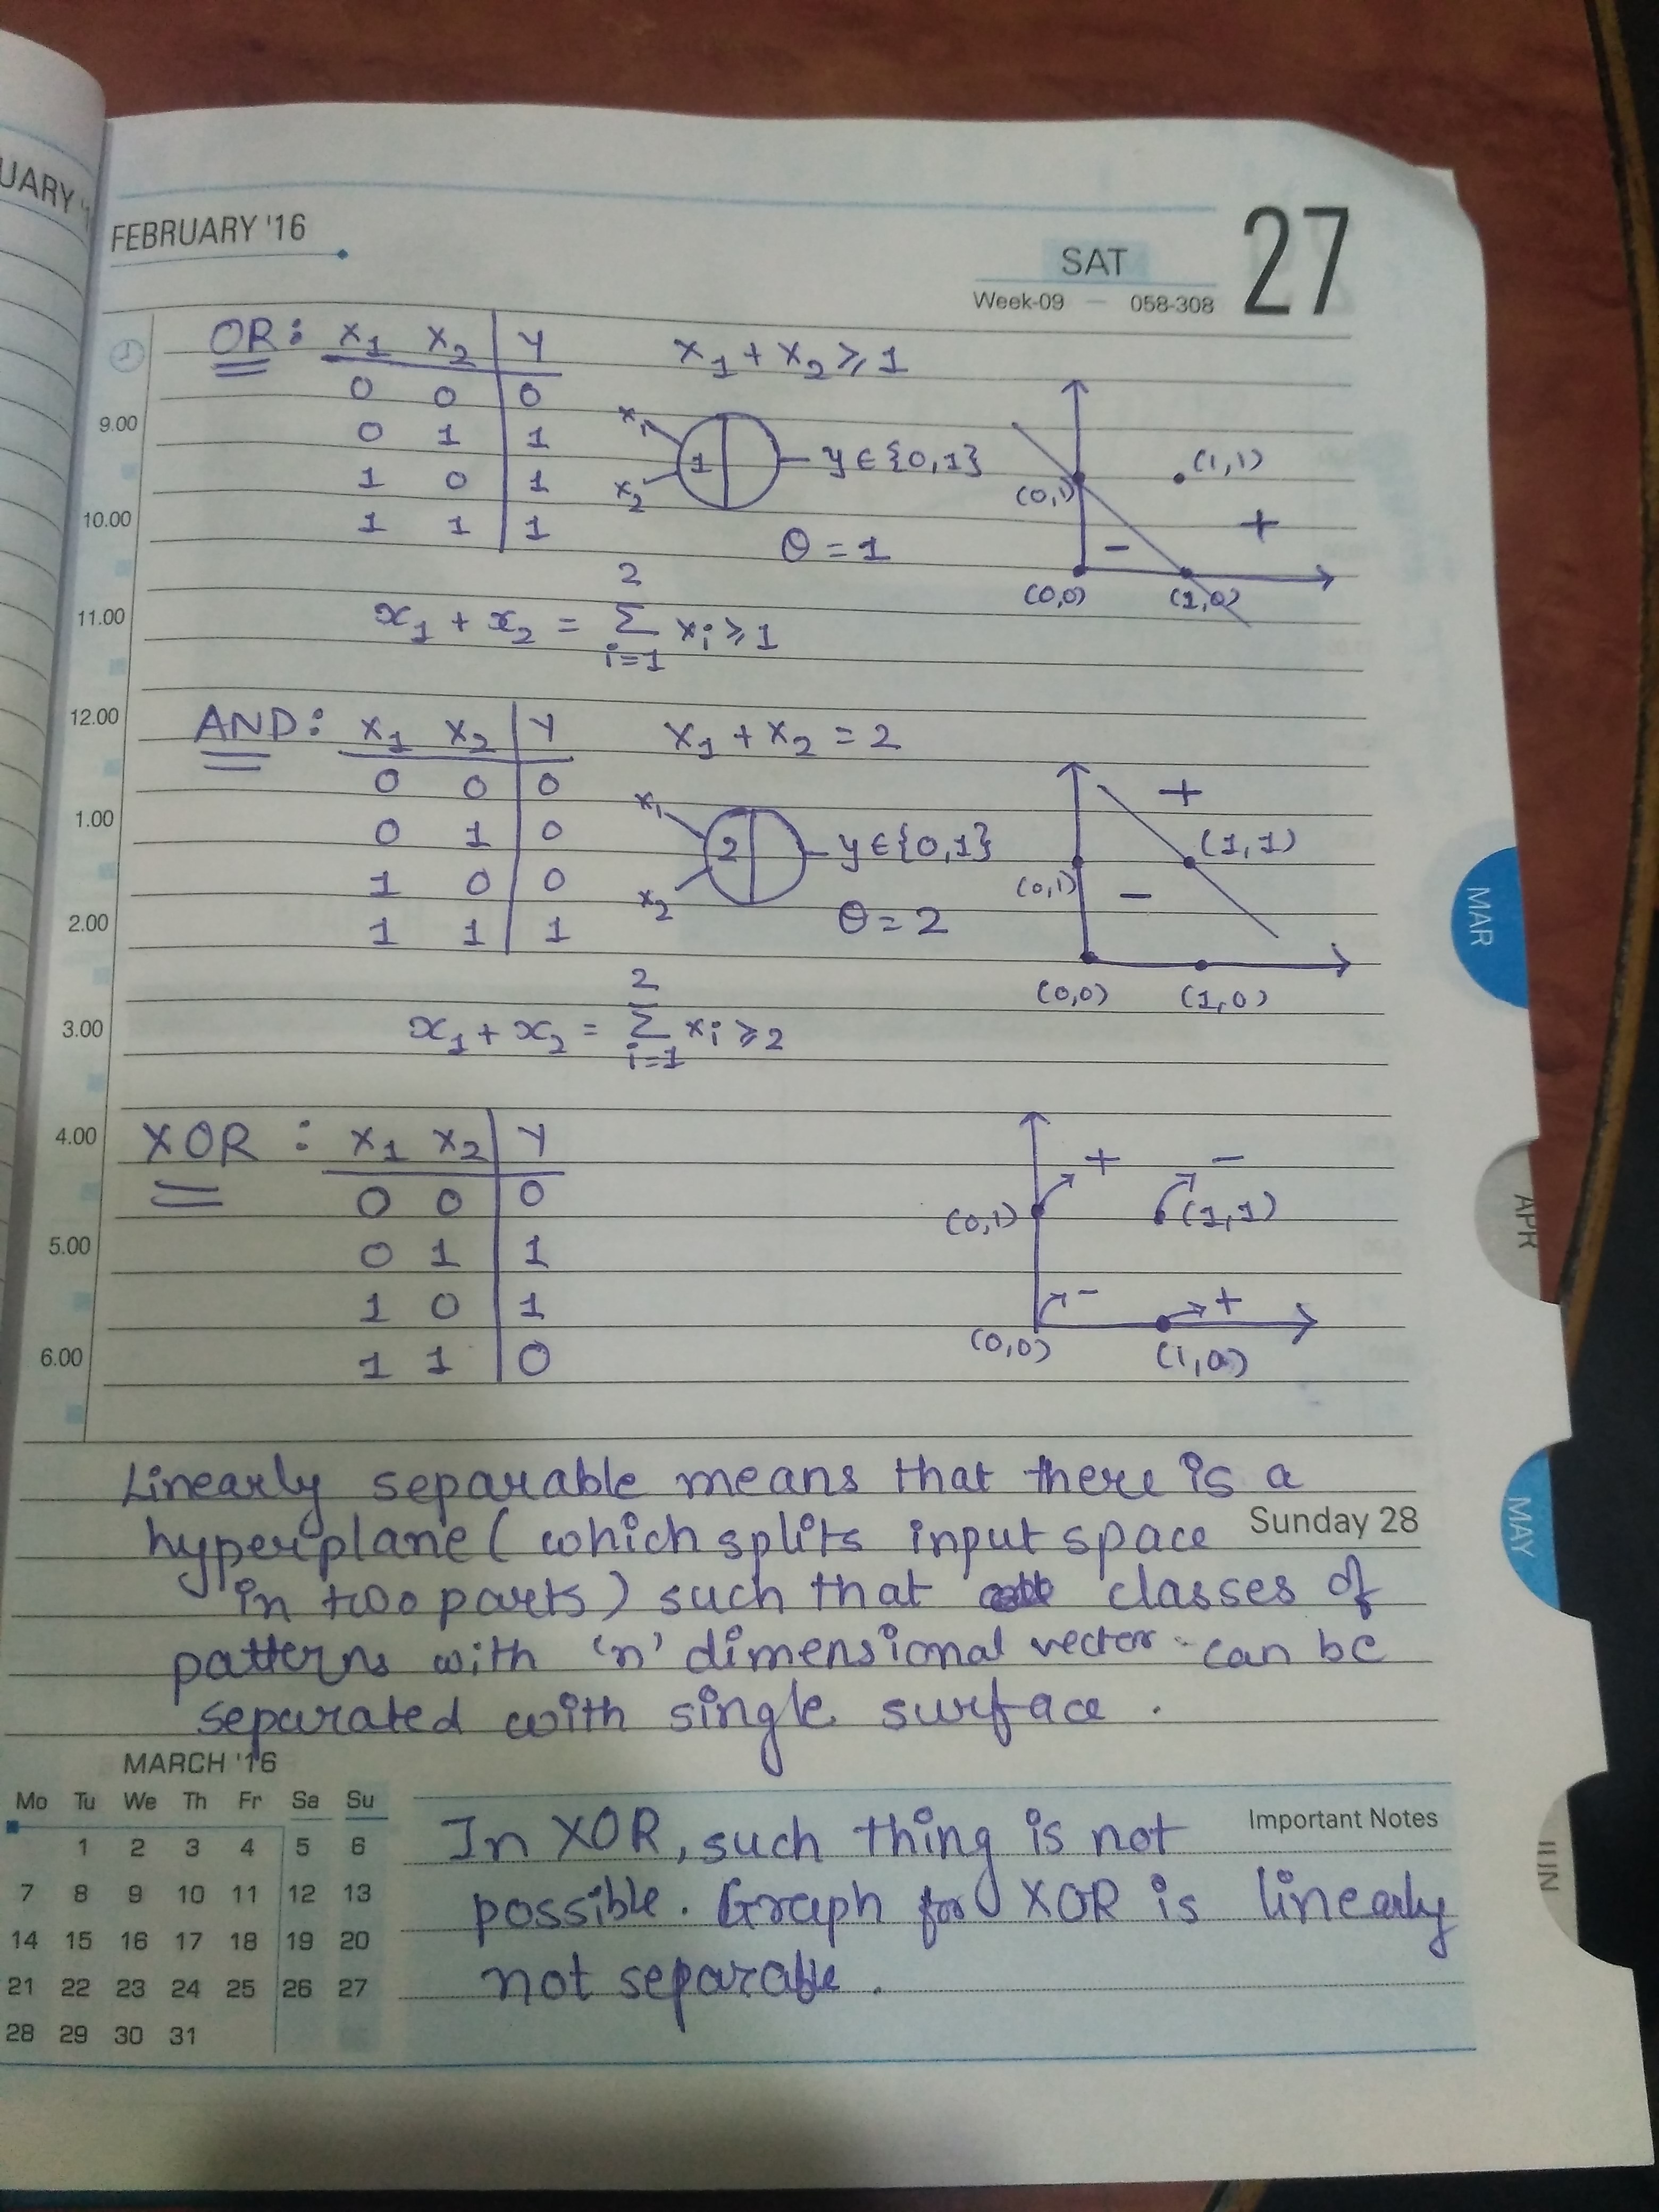 UARY '1
FEBRUARY '16
SAT
27
Week-09 — 058-308
OR: X1 X2 | Y
X1 + X2 ⩾ 1
0 0 0
9.00
0 1 1
1 0 1
10.00
1 1 1
x1
x2
1
y ∈ {0,1}
θ = 1
(0,1)
(1,1)
+
−
(0,0)
(1,0)
11.00
x1 + x2 = 2 Σ i=1 xi ⩾ 1
12.00
AND: X1 X2 | Y
X1 + X2 = 2
0 0 0
1.00
0 1 0
1 0 0
2.00
1 1 1
x1
x2
2
y ∈ {0,1}
θ = 2
+
(1,1)
(0,1)
−
(0,0)
(1,0)
3.00
x1 + x2 = 2 Σ i=1 xi ⩾ 2
4.00
XOR : X1 X2 | Y
0 0 0
5.00
0 1 1
1 0 1
6.00
1 1 0
+
−
(0,1)
(1,1)
−
+
(0,0)
(1,0)
Linearly separable means that there is a
hyperplane (which splits input space
Sunday 28
in two parts) such that classes of
patterns with 'n' dimensional vector can be
separated with single surface.
MARCH '16
Mo Tu We Th Fr Sa Su
1 2 3 4 5 6
7 8 9 10 11 12 13
14 15 16 17 18 19 20
21 22 23 24 25 26 27
28 29 30 31
Important Notes
In XOR, such thing is not
possible. Graph for XOR is linearly
not separable.
MAR
APR
MAY
JUN